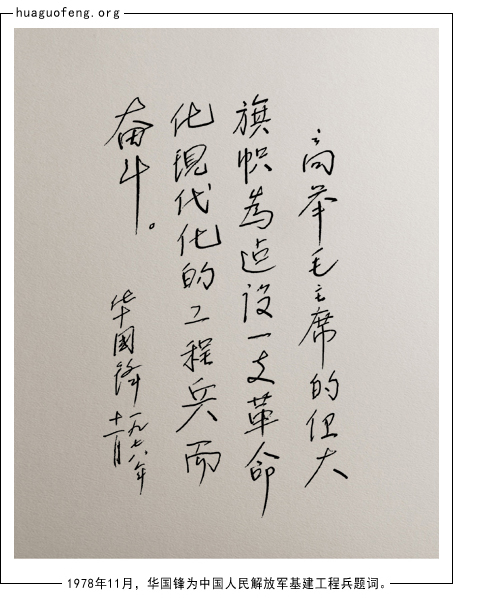 huaguofeng.org
高举毛主席的伟大
旗帜為建设一支革命
化现代化的工程兵而
奋斗。
华國锋一九七八年
十一月
1978年11月，华国锋为中国人民解放军基建工程兵题词。